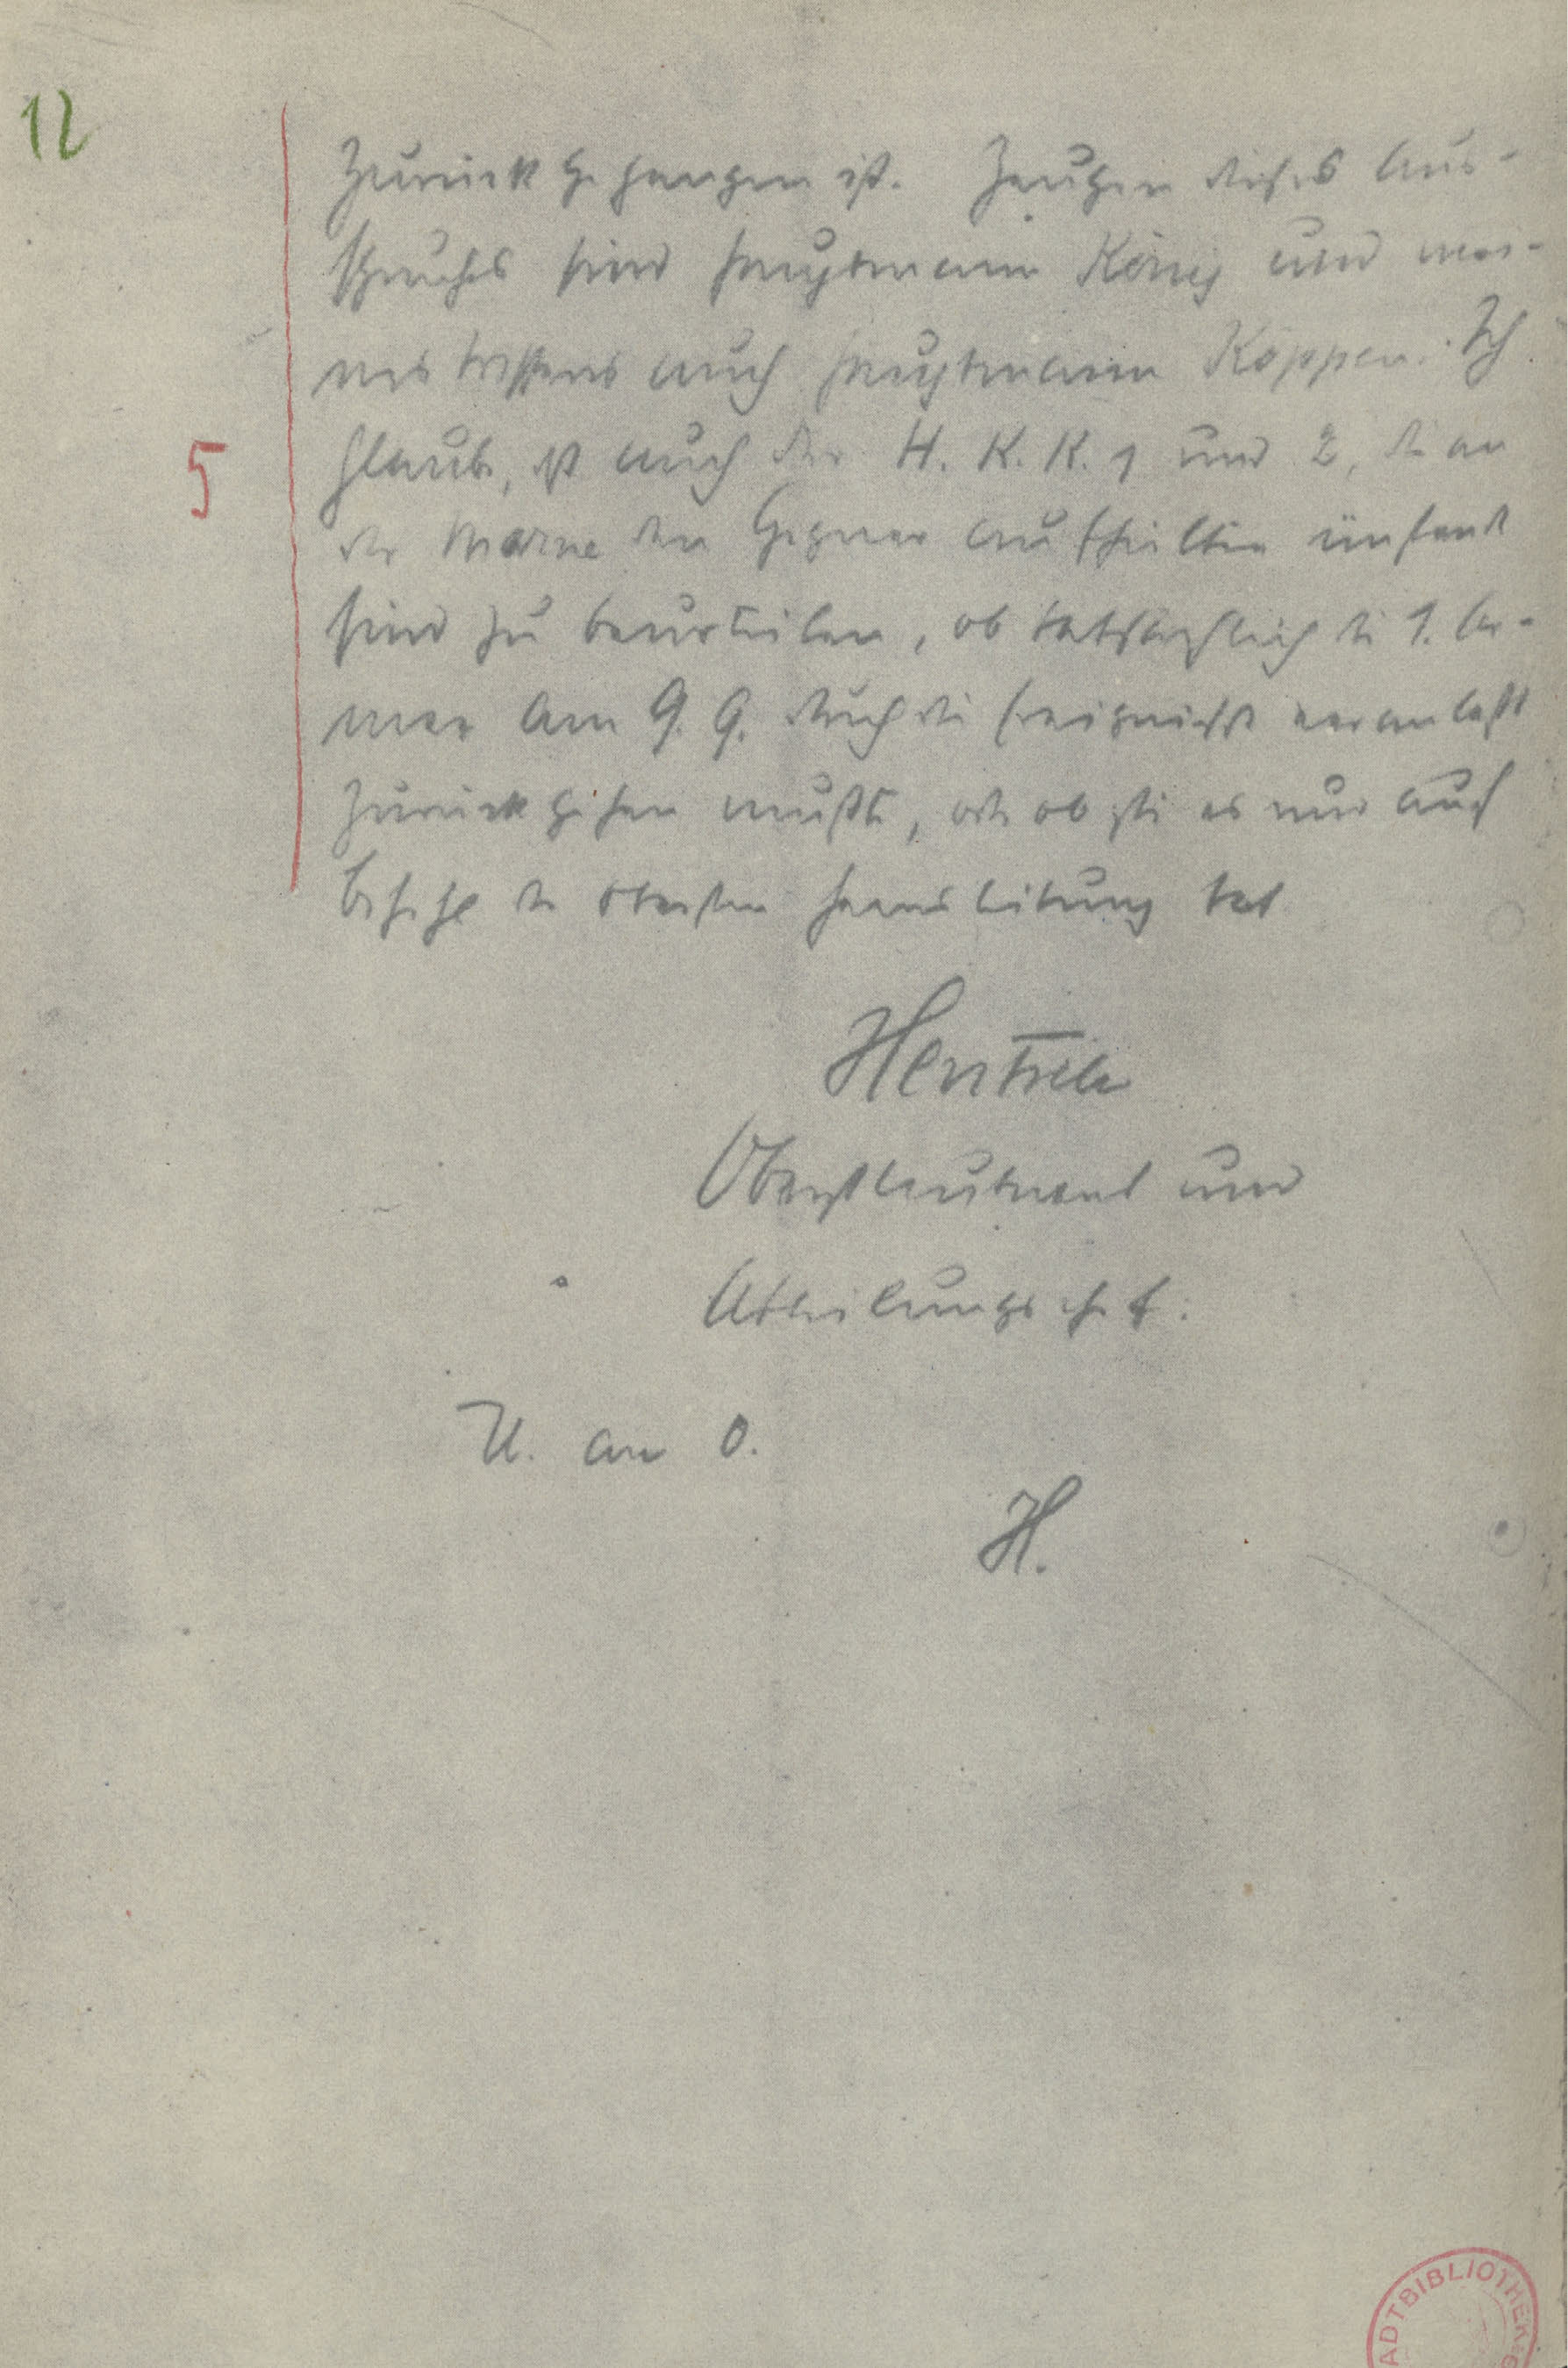 12
zurückgegangen ist. Zeugen dieses Aus-
spruches sind Hauptmann König und mei-
nes Wissens auch Hauptmann Köppen. Ich
5
glaube, ist auch der H. K. K. 1 und 2, die an
der Marne den Gegner aufhielten imstande
sind zu beurteilen, ob tatsächlich die 1. Ar-
mee am 9. 9. durch die Ereignisse veranlaßt
zurückgehen mußte, oder ob sie es nur auf
Befehl der Obersten Heeresleitung tat
Hentsch
Oberstleutnant und
Abteilungschef.
U. an O.
H.
ADTBIBLIOTHEK